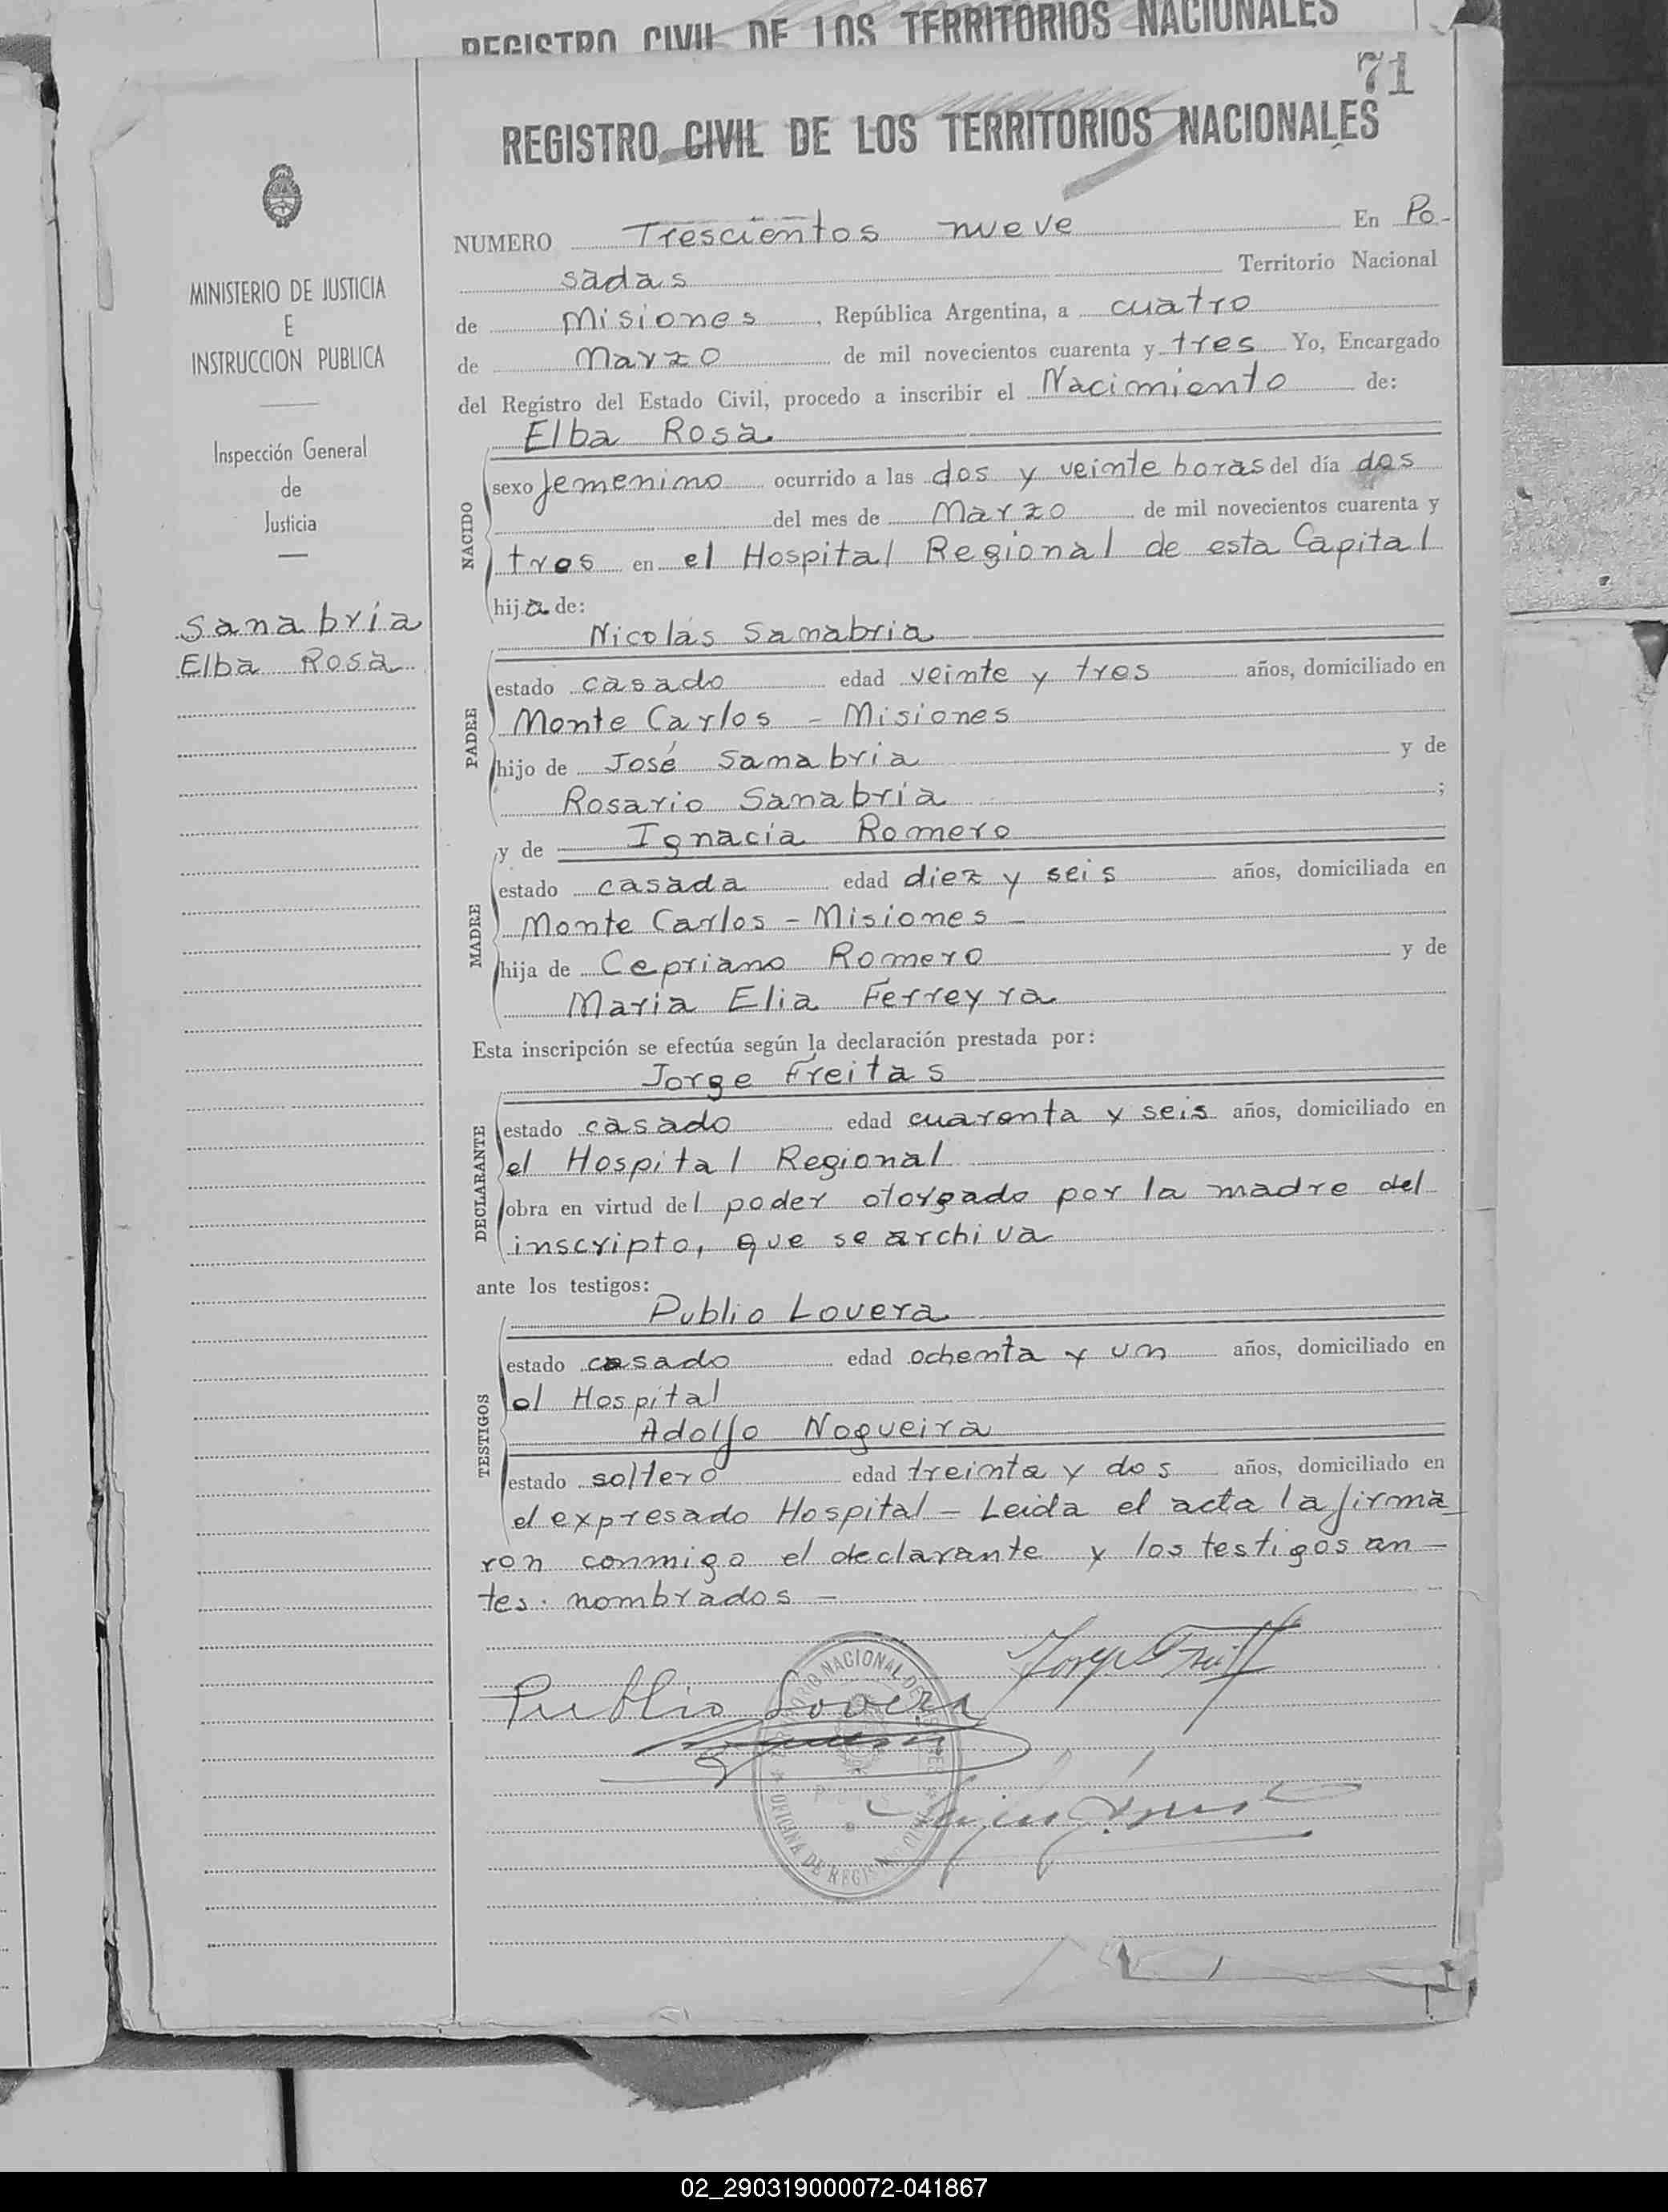 REGISTRO CIVIL DE LOS TERRITORIOS NACIONALES
71
REGISTRO CIVIL DE LOS TERRITORIOS NACIONALES
MINISTERIO DE JUSTICIA
E
INSTRUCCION PUBLICA
Inspección General
de
Justicia
Sanabria
Elba Rosa
NUMERO Trescientos nueve En Po-
sadas Territorio Nacional
de Misiones, República Argentina, a cuatro
de Marzo de mil novecientos cuarenta y tres Yo, Encargado
del Registro del Estado Civil, procedo a inscribir el Nacimiento de:
Elba Rosa
NACIDO
sexo femenino ocurrido a las dos y veinte horas del día dos
del mes de Marzo de mil novecientos cuarenta y
tres en el Hospital Regional de esta Capital
hija de:
Nicolás Sanabria
PADRE
estado casado edad veinte y tres años, domiciliado en
Monte Carlos - Misiones
hijo de José Sanabria y de
Rosario Sanabria ;
y de Ignacia Romero
MADRE
estado casada edad diez y seis años, domiciliada en
Monte Carlos - Misiones -
hija de Cepriano Romero y de
Maria Elia Ferreyra
Esta inscripción se efectúa según la declaración prestada por:
Jorge Freitas
DECLARANTE
estado casado edad cuarenta y seis años, domiciliado en
el Hospital Regional
obra en virtud del poder otorgado por la madre del
inscripto, que se archiva
ante los testigos:
Publio Lovera
TESTIGOS
estado casado edad ochenta y un años, domiciliado en
el Hospital
Adolfo Nogueira
estado soltero edad treinta y dos años, domiciliado en
el expresado Hospital - Leida el acta la firma-
ron conmigo el declarante y los testigos an-
tes nombrados -
Publio Lovera
NACIONAL DE
OFICINA DE
02_290319000072-041867